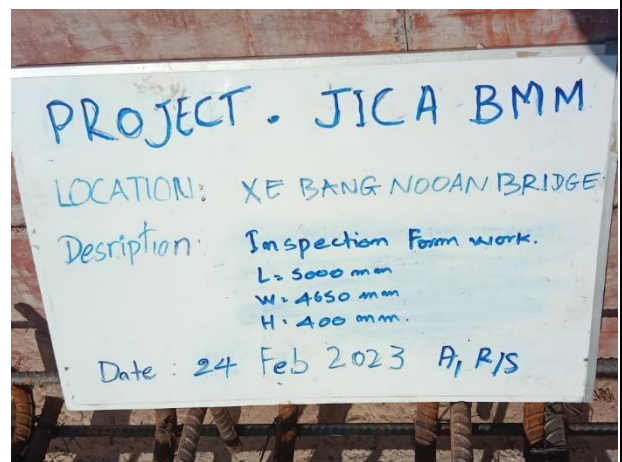 PROJECT. JICA BMM
LOCATION: XE BANG NOOAN BRIDGE
Desription: Inspection Form work.
L= 5000 mm
W= 4650 mm
H: 400 mm.
Date: 24 Feb 2023 A1 R/S